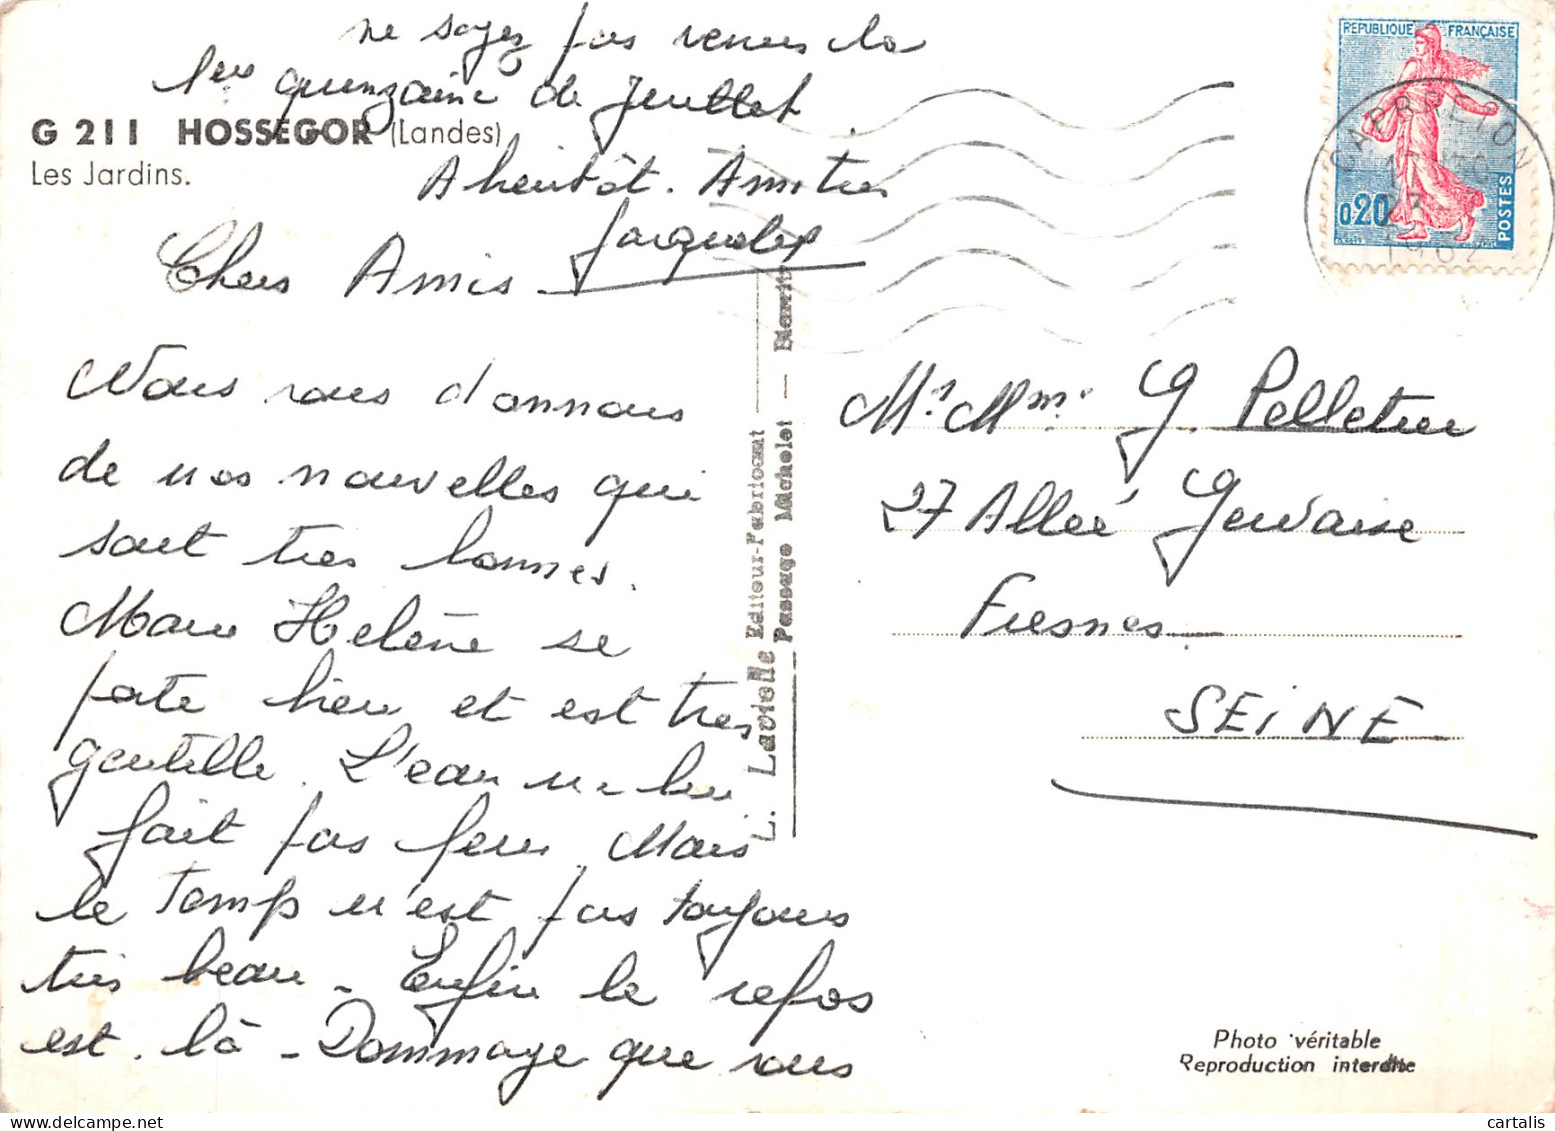 ne soyez pas venus la
1ere quinzaine de Juillet
G 211 HOSSEGOR (Landes)
Les Jardins.
A bientôt. Amitiés
Chers Amis
Nous vous donnons
de nos nouvelles qui
sont très bonnes.
Marie Helène se
porte bien et est très
gentille. L'eau ne lui
fait pas peur. Mais
le temps n'est pas toujours
très beau - Enfin le repos
est là - Dommage que vous
L. Lavielle Editeur-Fabricant
Passage Michelet — Biarritz
REPUBLIQUE FRANÇAISE
0,20
POSTES
CAPBRETON
17 H30
1962
Mr Mme G. Pelletier
27 Allée Gervaise
Fresnes
SEINE
Photo véritable
Reproduction interdite
cartalis